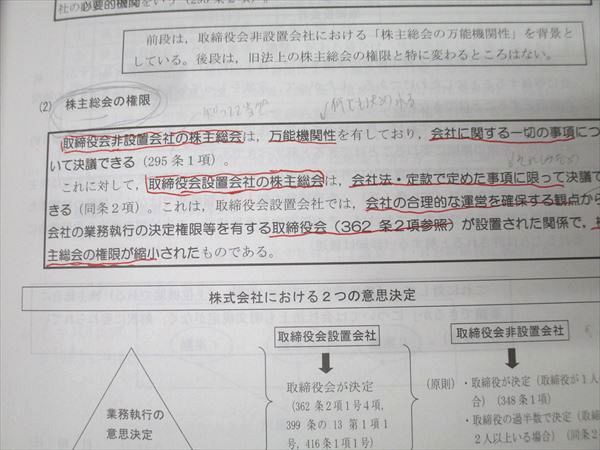 社の必要的機関をいう（295条2
前段は，取締役会非設置会社における「株主総会の万能機関性」を背景と
している。後段は，旧法上の株主総会の権限と特に変わるところはない。
(2) 株主総会の権限
何でも決めれる
取締役会非設置会社の株主総会は，万能機関性を有しており，会社に関する一切の事項につ
いて決議できる（295条1項）。
これに対して，取締役会設置会社の株主総会は，会社法・定款で定めた事項に限って決議で
きる（同条2項）。これは，取締役会設置会社では，会社の合理的な運営を確保する観点から
会社の業務執行の決定権限等を有する取締役会（362条2項参照）が設置された関係で，
主総会の権限が縮小されたものである。
株式会社における2つの意思決定
業務執行の
意思決定
取締役会設置会社
取締役会が決定
（362条2項1号4項，
399条の13第1項1
号，416条1項1号）
取締役会非設置会社
（原則）・取締役が決定（取締役が1人
合）（348条1項）
・取締役の過半数で決定（取
2人以上いる場合）（同条2